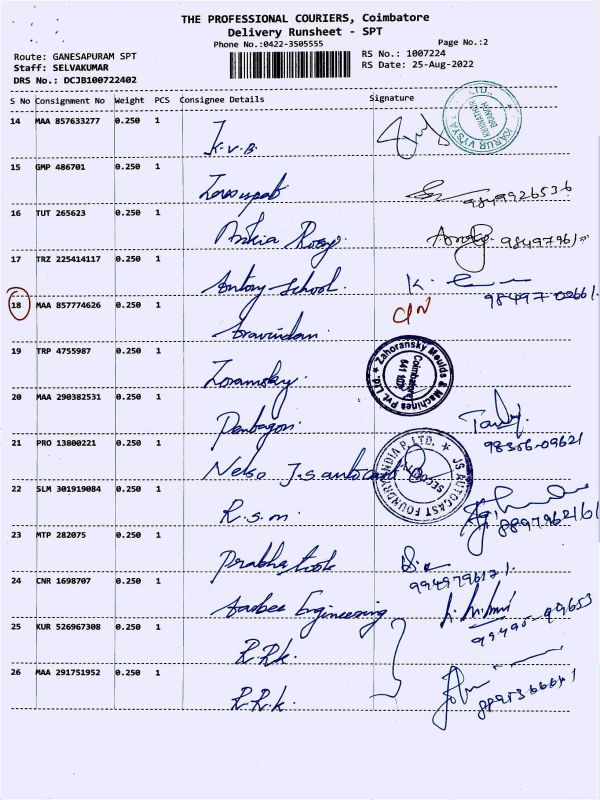 THE PROFESSIONAL COURIERS, Coimbatore
Delivery Runsheet - SPT
Phone No.:0422-3505555
Page No.:2
Route: GANESAPURAM SPT
Staff: SELVAKUMAR
DRS No.: DCJB100722402
RS No.: 1007224
RS Date: 25-Aug-2022
S No Consignment No Weight PCS Consignee Details Signature
14 MAA 857633277 0.250 1
K.V.B.
KARUR VYSYA
BRANCH
15 GMP 486701 0.250 1
9849926536
16 TUT 265623 0.250 1
Rosy.
17 TRZ 225414117 0.250 1
Antony School. K.
18 MAA 857774626 0.250 1
Aravindan.
19 TRP 4755987 0.250 1
Zahoransky Moulds & Machines Pvt. Ltd.
Coimbatore
20 MAA 290382531 0.250 1
Pentagon.
21 PRO 13800221 0.250 1
98356-09621
Nelso J.S autocast
JS AUTOCAST FOUNDRY INDIA P. LTD.
SECURITY
22 SLM 301919084 0.250 1
R.S.M.
23 MTP 282075 0.250 1
Prabha
24 CNR 1698707 0.250 1
Engineering
25 KUR 526967308 0.250 1
R.R.K.
26 MAA 291751952 0.250 1
R.R.K.